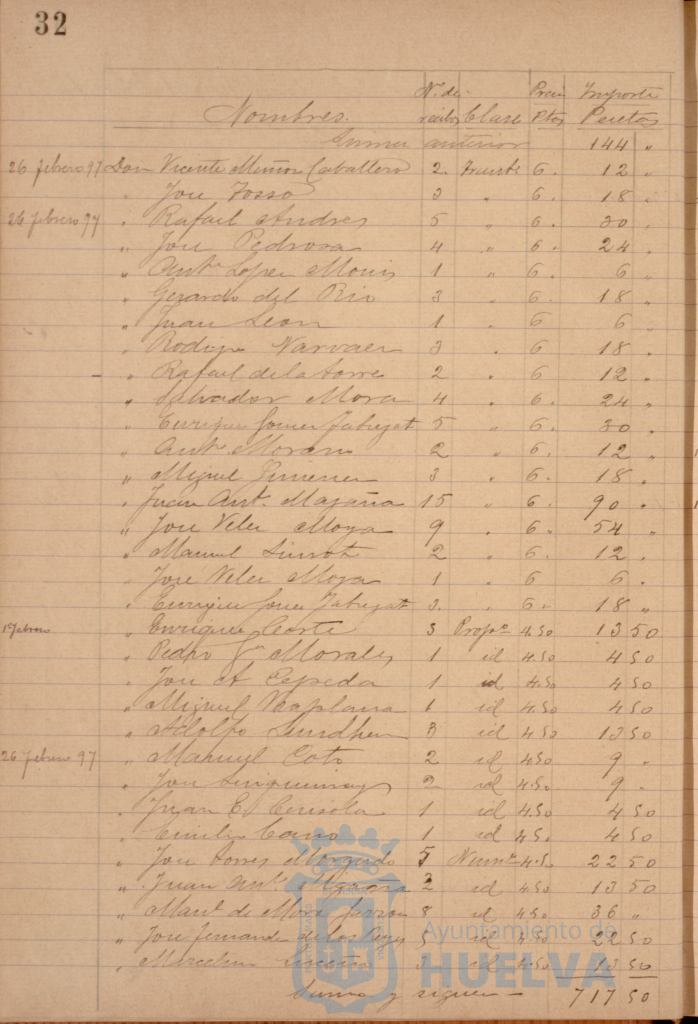 32
Nombres. Nº. de recibos Clase Precio Ptas Importe Pesetas
Suma anterior 144 "
26 febrero 97 Don Vicente Muñoz Caballero 2. 6. 12 "
" José Tosso 3 " 6. 18 "
26 febrero 97 " Rafael Andres 5 " 6. 30 "
" José Pedrosa 4 " 6. 24 "
" Antº Lopez Monis 1 " 6. 6 "
" Gerardo del Rio 3 " 6. 18 "
" Juan Leon 1 " 6 6 "
" Rodrigo Narvaez 3 " 6 18 "
" Rafael de la Torre 2 " 6 12 "
" Salvador Mora 4 " 6. 24 "
" Enrique Gomez 5 " 6. 30 "
" Antº Moreno 2 " 6. 12 "
" Miguel Jimenez 3 " 6. 18 "
" Juan Antº. Magaña 15 " 6. 90 "
" José Velez Moya 9 " 6. 54 "
" Manuel 2 " 6. 12 "
" José Velez Moya 1 " 6 6 "
" Enrique Gomez 3. " 6. 18 "
1º febrero " Enrique Corte 3 Propº 4.50 13 50
" Pedro Gª Morales 1 id 4.50 4 50
" José A Cepeda 1 id 4.50 4 50
" Miguel Vaplana 1 id 4.50 4 50
" Adolfo Sundhein 3 id 4.50 13 50
26 febrero 97 " Manuel Coto 2 id 4.50 9 "
" José 2 id 4.50 9 "
" Juan E. Cerisola 1 id 4.50 4 50
" Emilio Cano 1 id 4.50 4 50
" José Torres 5 4.50 22 50
" Juan Antº Magaña 3 id 4.50 13 50
" Manl de Mora 8 id 4.50 36 "
" José Fernandez de los Reyes 5 id 4.50 22 50
" Marcelino 3 id 4.50 13 50
Suma y sigue — 717 50
Ayuntamiento de
HUELVA